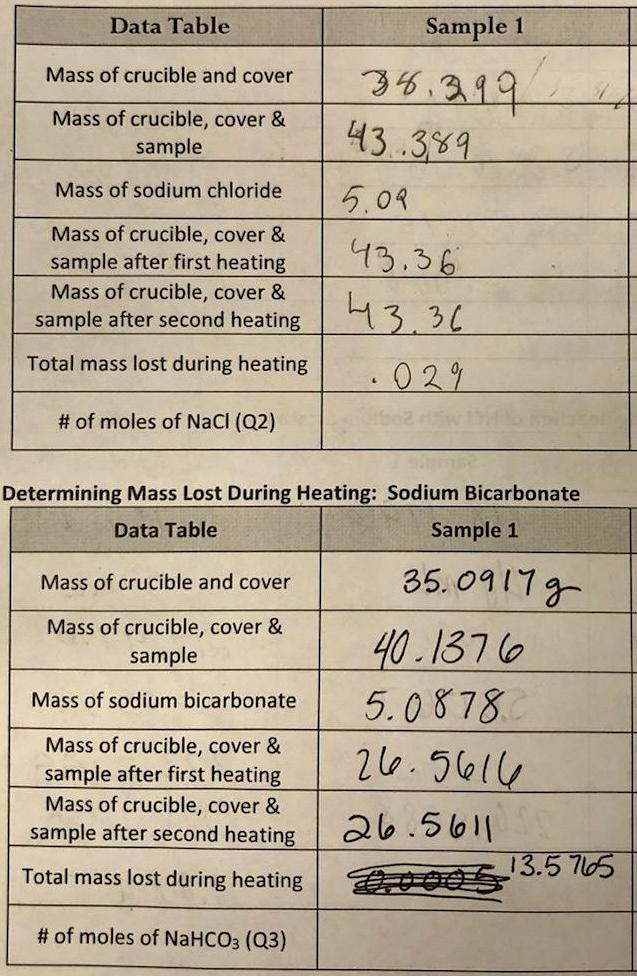 Data Table Sample 1
Mass of crucible and cover 38.299
Mass of crucible, cover &
sample 43.389
Mass of sodium chloride 5.09
Mass of crucible, cover &
sample after first heating 43.36
Mass of crucible, cover &
sample after second heating 43.36
Total mass lost during heating .029
# of moles of NaCl (Q2)
Determining Mass Lost During Heating: Sodium Bicarbonate
Data Table Sample 1
Mass of crucible and cover 35.0917g
Mass of crucible, cover &
sample 40.1376
Mass of sodium bicarbonate 5.0878
Mass of crucible, cover &
sample after first heating 26.5616
Mass of crucible, cover &
sample after second heating 26.5611
Total mass lost during heating 0.0005 13.5765
# of moles of NaHCO₃ (Q3)